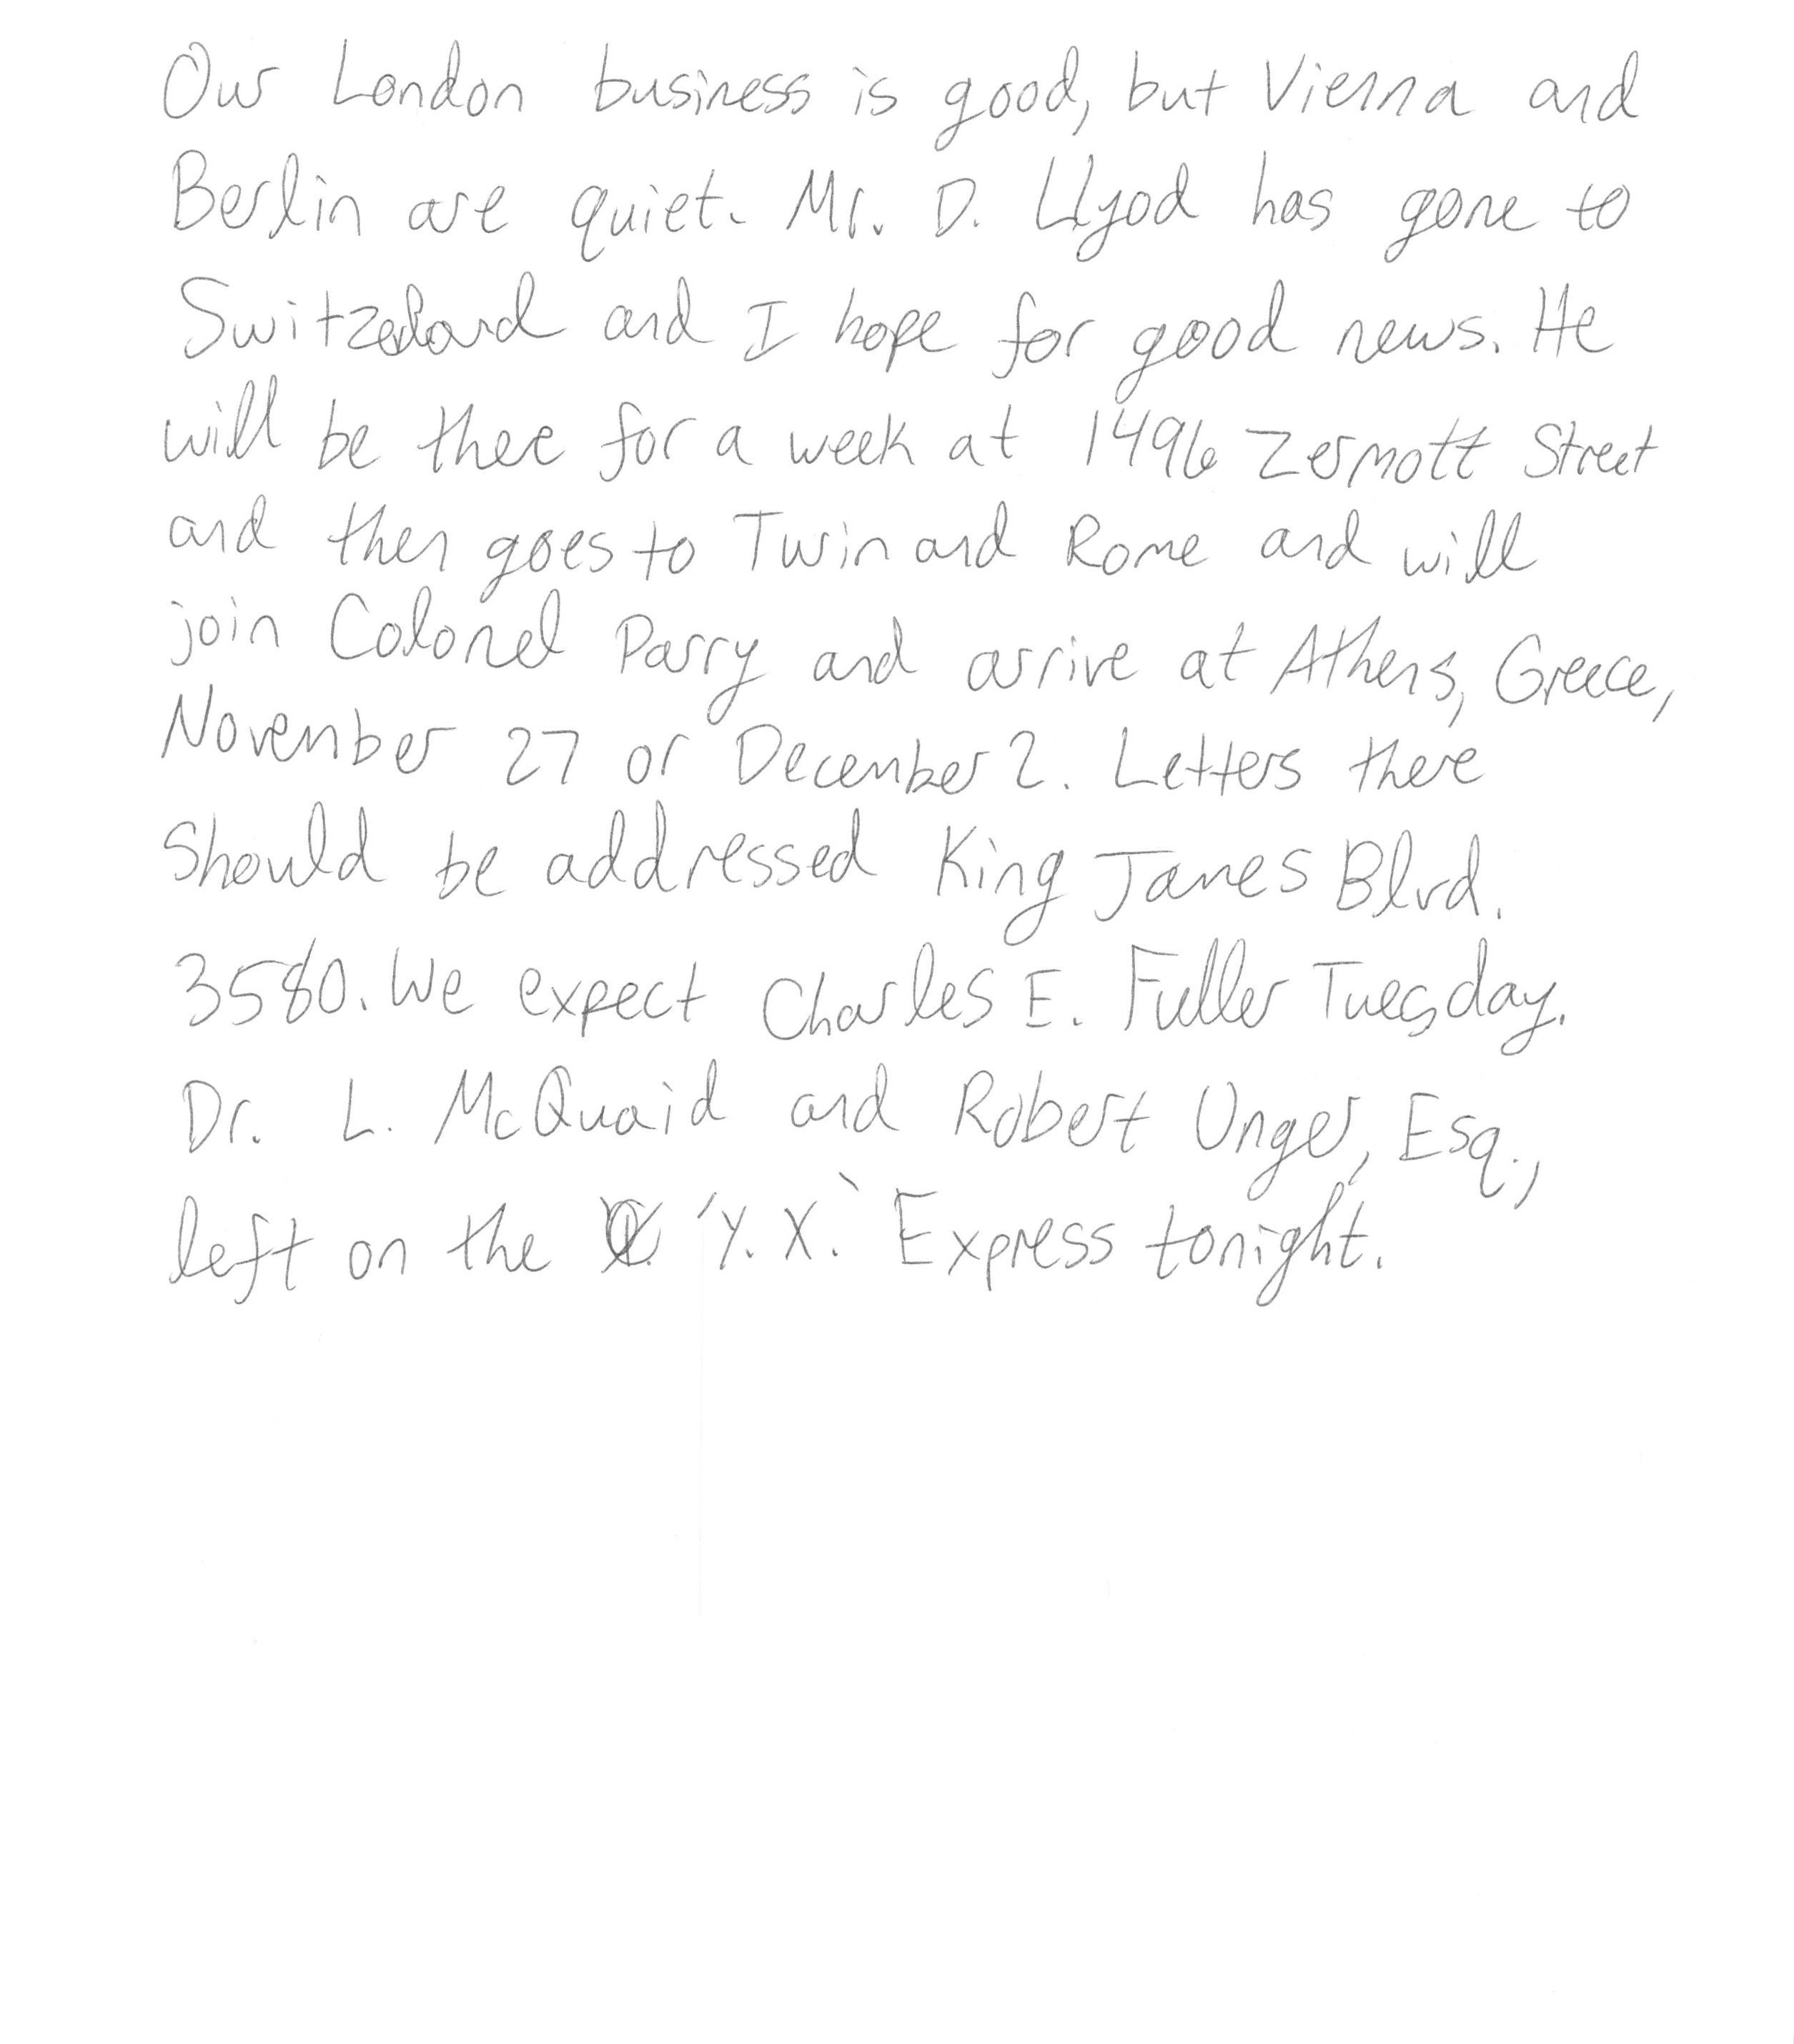 Our London business is good, but Vienna and
Berlin are quiet. Mr. D. Llyod has gone to
Switzerland and I hope for good news. He
will be there for a week at 1496 Zermott Street
and then goes to Turin and Rome and will
join Colonel Parry and arrive at Athens, Greece,
November 27 or December 2. Letters there
Should be addressed King James Blvd.
3580. We expect Charles E. Fuller Tuesday.
Dr. L. McQuaid and Robert Unger, Esq.,
left on the 'Y. X.' Express tonight.